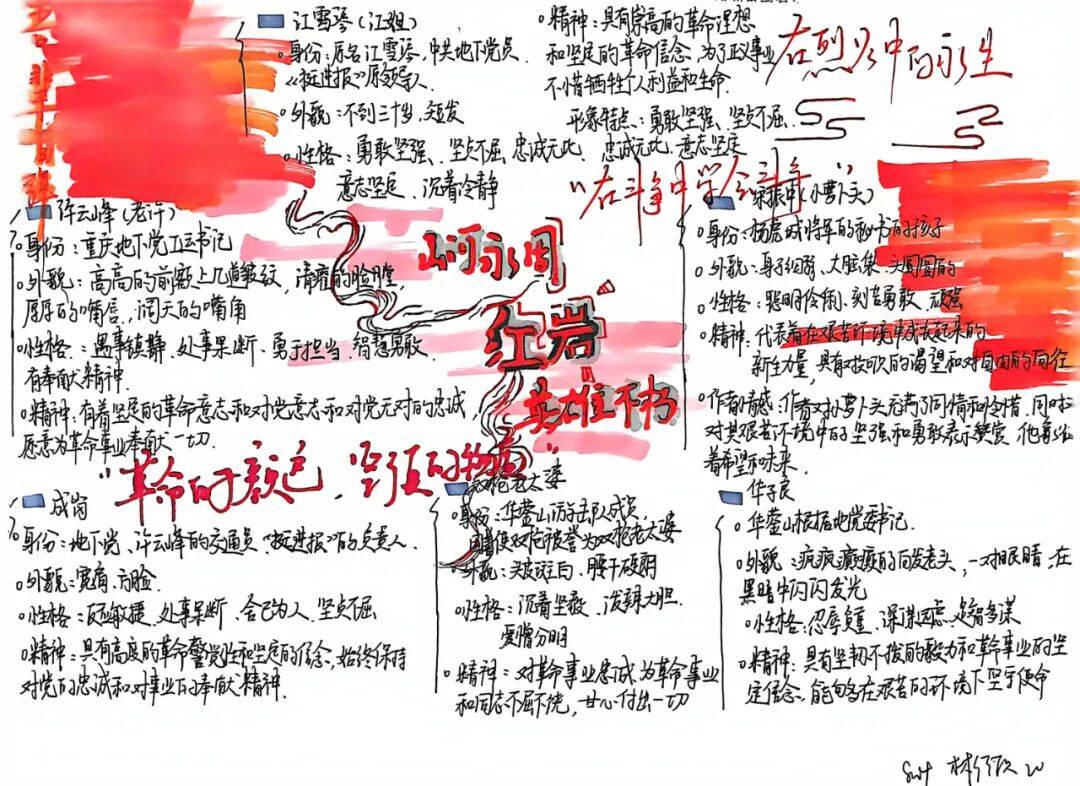 江雪琴（江姐）
身份：原名江雪琴，中共地下党员
《挺进报》原领导人
外貌：不到三十岁，短发
性格：勇敢坚强、坚贞不屈、忠诚无比、
意志坚定、沉着冷静
精神：具有崇高的革命理想
和坚定的革命信念，为了正义事业
不惜牺牲个人利益和生命
形象特点：勇敢坚强、坚贞不屈、
忠诚无比、意志坚定
在烈火中的永生
"在斗争中学会斗争"
许云峰（老许）
身份：重庆地下党工运书记
外貌：高高的前额上几道皱纹，清瘦的脸膛，
厚厚的嘴唇，阔大的嘴角
性格：遇事镇静、处事果断、勇于担当、智慧勇敢、
有奉献精神
精神：有着坚定的革命意志和对党意志和对党无对的忠诚，
愿意为革命事业奉献一切.
山河永固
红岩
英雄不朽
宋振中（小萝卜头）
身份：杨虎城将军的秘书的孩子
外貌：身子细弱、大脑袋、头圆圆的
性格：聪明伶俐、刻苦勇敢、顽强
精神：代表着在艰苦环境中成长起来的
新生力量，具有对 的渴望和对自由的向往
作者情感：作者对小萝卜头充满了同情和怜惜，同时
对其艰苦环境中的坚强和勇敢表示赞赏，他寄
着希望和未来.
"革命的颜色，坚强的
成岗
身份：地下党、许云峰的交通员"挺进报"的负责人.
外貌：宽肩、方脸.
性格：反应敏捷、处事果断、舍己为人、坚贞不屈
精神：具有高度的革命警觉性和坚定的信念，始终保持
对党的忠诚和对事业的奉献精神.
双枪老太婆
身份：华蓥山游击队成员，
因善使双枪被誉为双枪老太婆
外貌：头发斑白、腰干硬朗
性格：沉着坚毅、泼辣大胆、
爱憎分明
精神：对革命事业忠诚，为革命事业
和同志不屈不挠，甘心付出一切
华子良
华蓥山根据地党委书记.
外貌：疯疯癫癫的白发老头，一对眼睛，在
黑暗中闪闪发光
性格：忍辱负重、深谋远虑、足智多谋
精神：具有坚韧不拔的毅力和革命事业的坚
定信念，能够在艰苦的环境下坚守使命